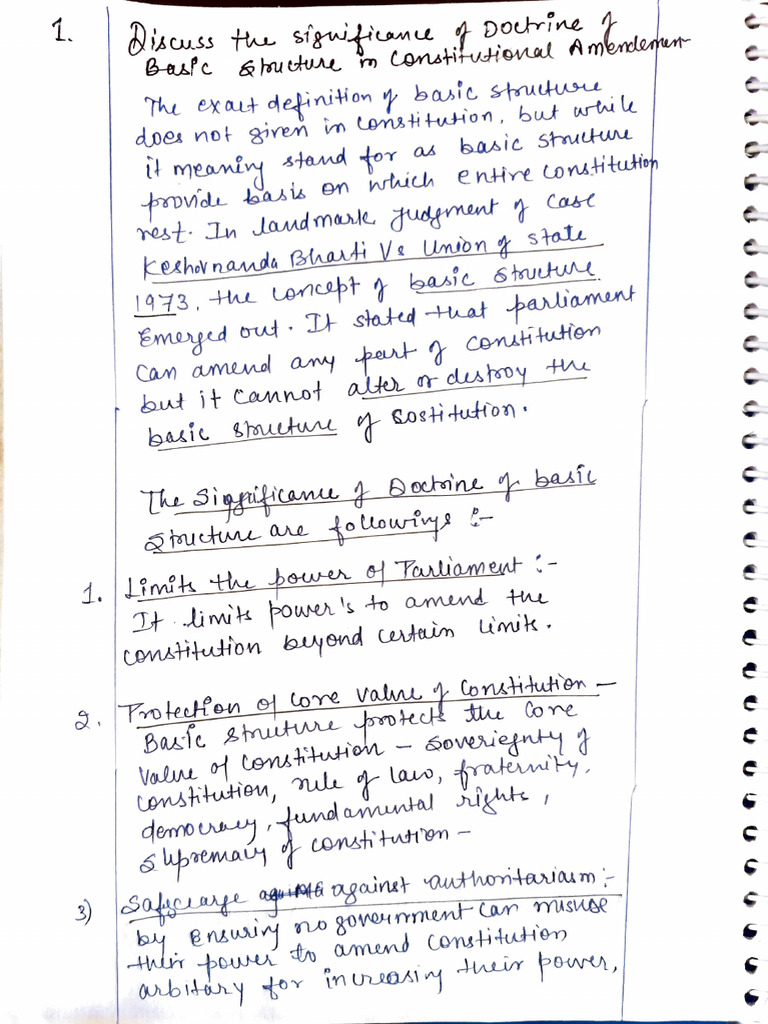 1. Discuss the significance of Doctrine of
Basic Structure in Constitutional Amendemen
The exact definition of basic structure
does not given in constitution, but while
it meaning stand for as basic structure
provide basis on which entire constitution
rest. In landmark judgment of case
Keshovnanda Bharti Vs Union of state
1973, the concept of basic structure
Emerged out. It stated that parliament
can amend any part of constitution
but it cannot alter or destroy the
basic structure of sostitution.
The Significance of Doctrine of basic
structure are followings :-
1. Limits the power of Parliament :-
It limits power's to amend the
constitution beyond certain limits.
2. Protection of core value of Constitution –
Basic structure protects the core
value of constitution – soveriegnty of
constitution, rule of law, fraternity,
democracy, fundamental rights,
supremacy of constitution –
3) against authoritariasm :-
by ensuring no government can misuse
their power to amend constitution
arbitary for increasing their power,